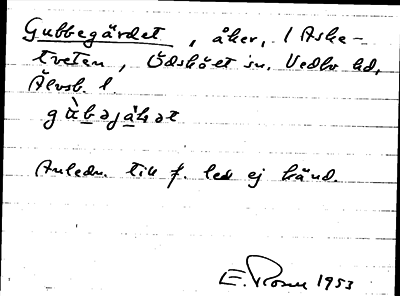 Gubbegärdet, åker, 1 Aske-
tveten, Ödskölt sn. Vedbo hd,
Älvsb. l.
gùbəjàḷət
Anledn. till f. led ej känd.
E. Rosen 1953